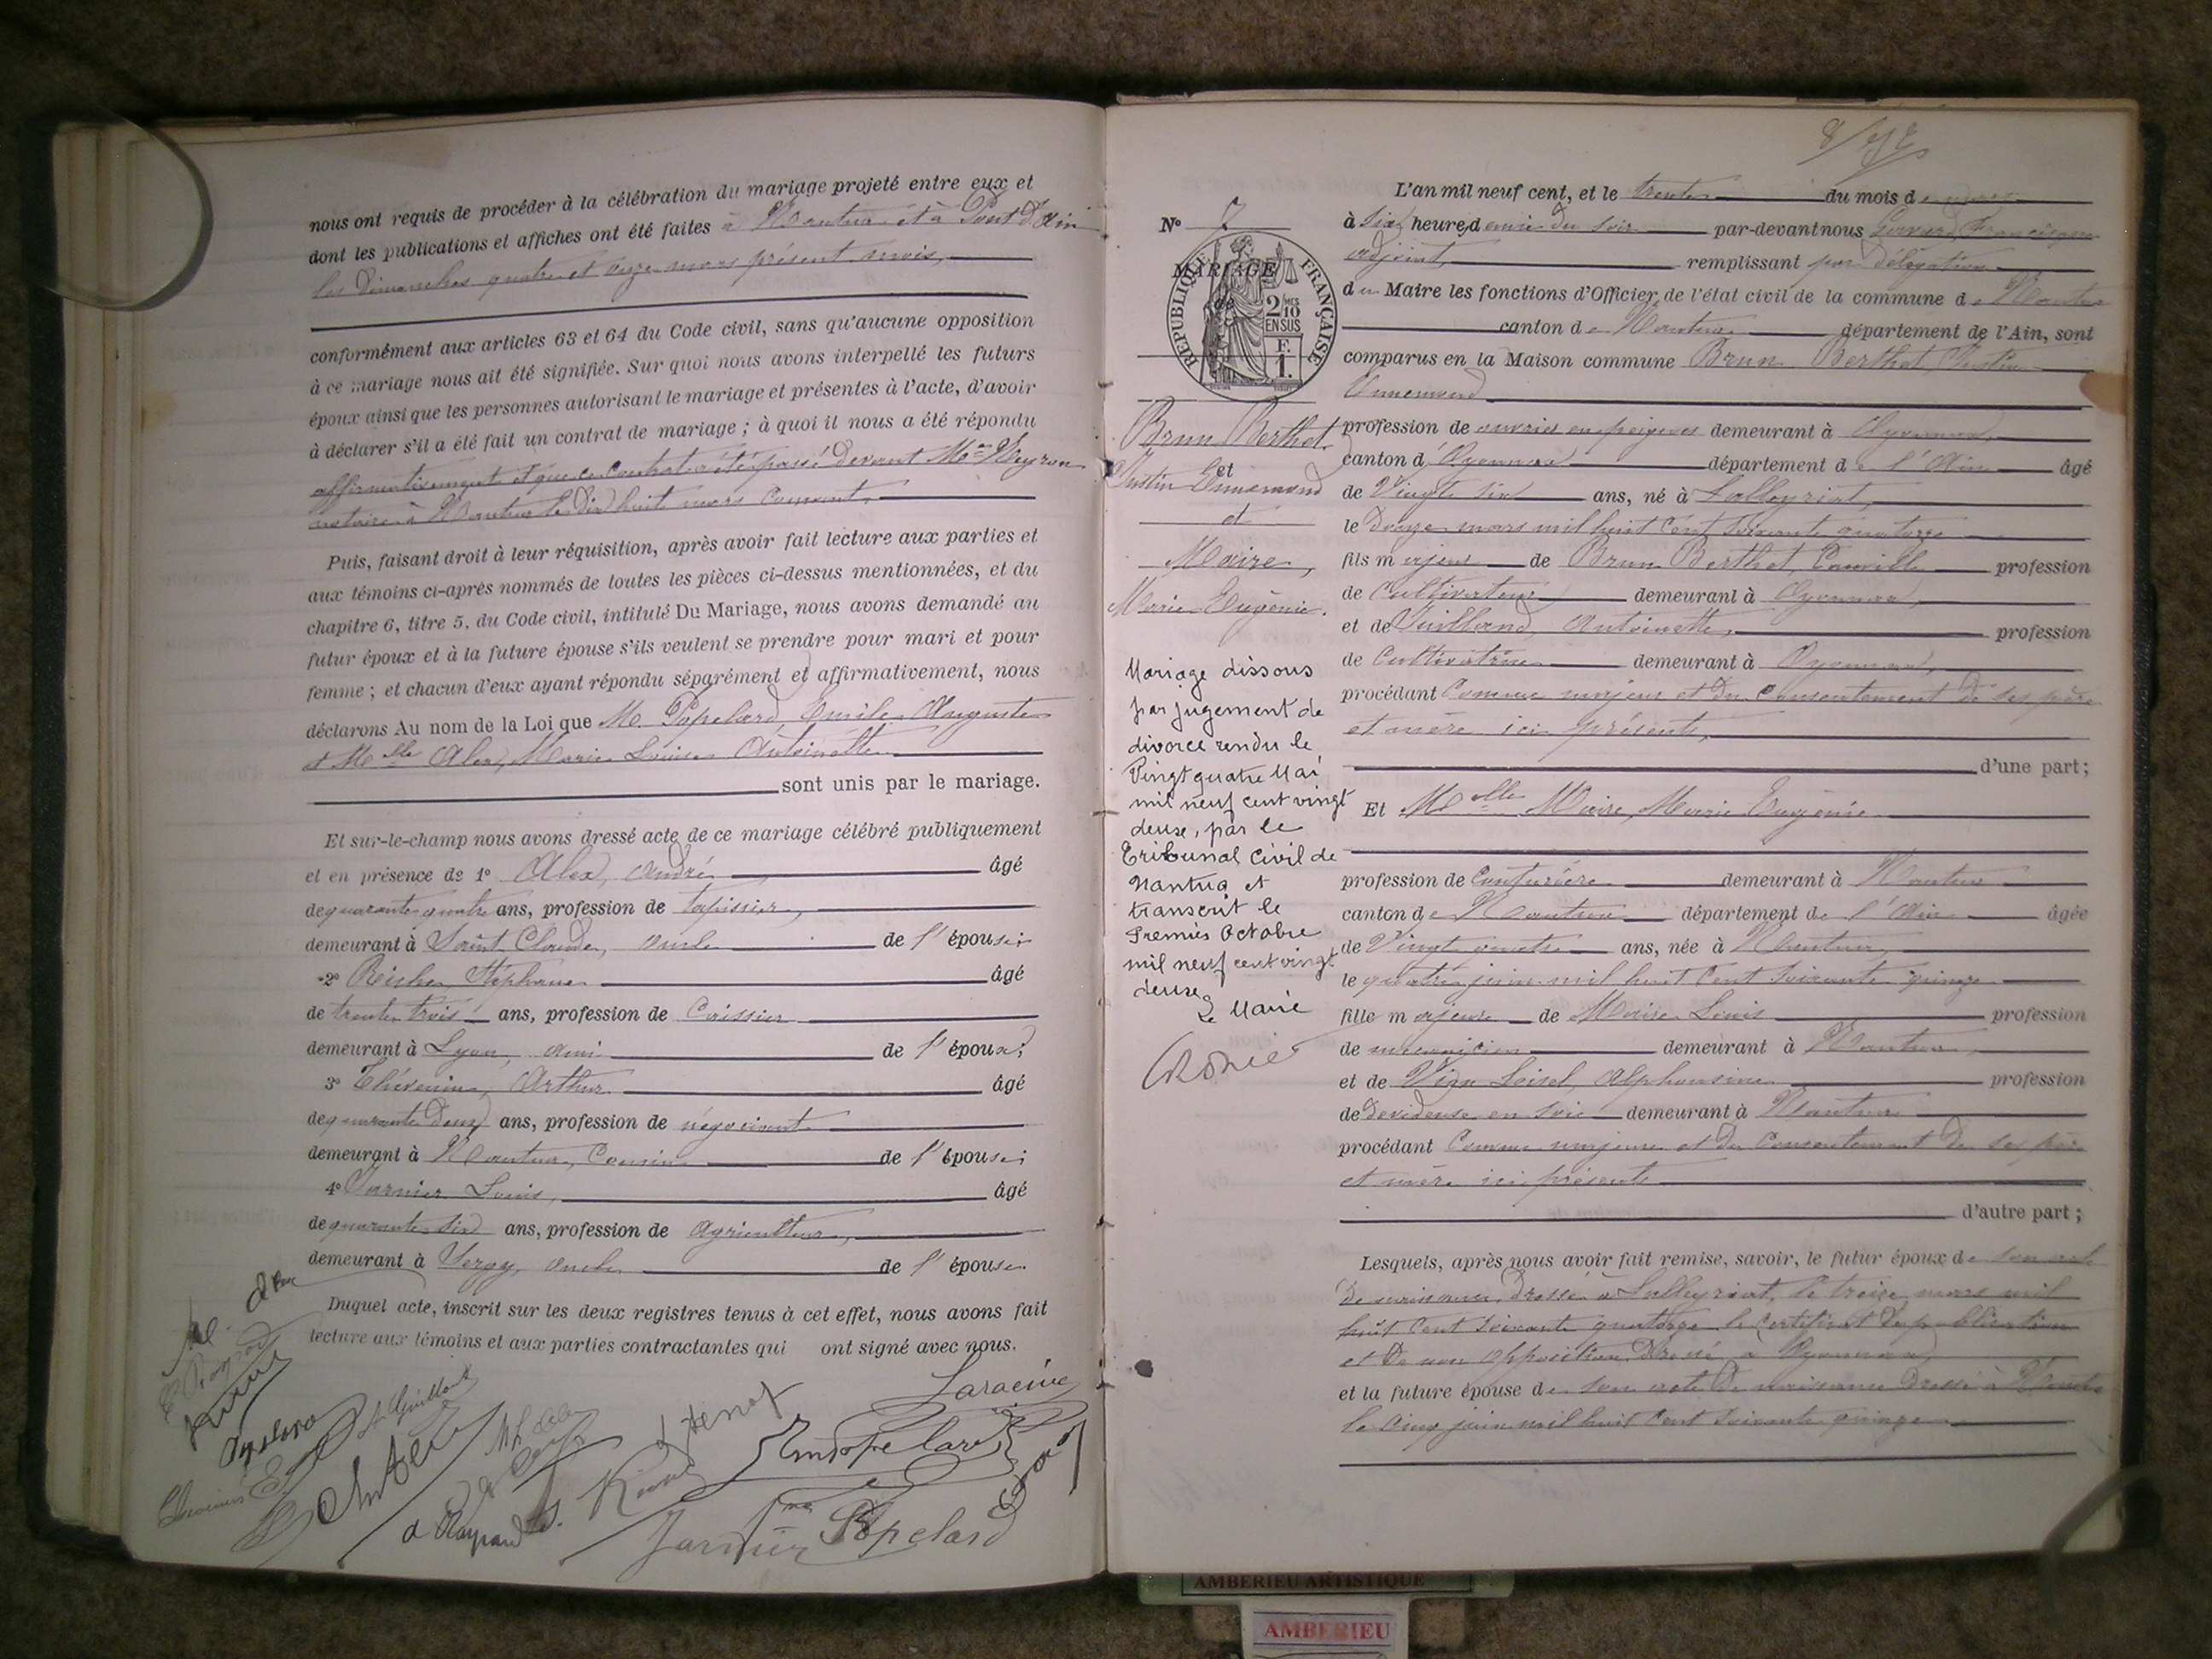 nous ont requis de procéder à la célébration du mariage projeté entre eux et
dont les publications et affiches ont été faites à Nantua et à Pont d'Ain
les dimanches quatre et onze mars présent mois,
conformément aux articles 63 et 64 du Code civil, sans qu'aucune opposition
à ce mariage nous ait été signifiée. Sur quoi nous avons interpellé les futurs
époux ainsi que les personnes autorisant le mariage et présentes à l'acte, d'avoir
à déclarer s'il a été fait un contrat de mariage ; à quoi il nous a été répondu
affirmativement et que ce contrat a été passé devant Me
notaire à Nantua le dix huit mars courant.
Puis, faisant droit à leur réquisition, après avoir fait lecture aux parties et
aux témoins ci-après nommés de toutes les pièces ci-dessus mentionnées, et du
chapitre 6, titre 5, du Code civil, intitulé Du Mariage, nous avons demandé au
futur époux et à la future épouse s'ils veulent se prendre pour mari et pour
femme ; et chacun d'eux ayant répondu séparément et affirmativement, nous
déclarons Au nom de la Loi que M. Popelard, Emile Auguste
et Melle Alex, Marie Louise Antoinette
sont unis par le mariage.
Et sur-le-champ nous avons dressé acte de ce mariage célébré publiquement
et en présence de 1° Alex, André âgé
de quarante quatre ans, profession de tapissier,
demeurant à Saint Claude, oncle de l'épouse;
2° Stéphane âgé
de trente trois ans, profession de Caissier
demeurant à Lyon, ami de l'époux;
3° Thévenin, Arthur âgé
de quarante deux ans, profession de négociant
demeurant à Nantua, Cousin de l'épouse;
4° Jarnier Louis, âgé
de quarante six ans, profession de Agriculteur,
demeurant à oncle de l'épouse.
Duquel acte, inscrit sur les deux registres tenus à cet effet, nous avons fait
lecture aux témoins et aux parties contractantes qui ont signé avec nous.
Popelard
Jarnier
N° 7
MARIAGE
de
RÉPUBLIQUE FRANÇAISE
2/10 EN SUS
F. 1.
Brun Berthet
et
Justin Ennemond
et
Maire,
Marie Eugénie.
Mariage dissous
par jugement de
divorce rendu le
Vingt quatre Mai
mil neuf cent vingt
deux, par le
Tribunal Civil de
Nantua et
transcrit le
Premier Octobre
mil neuf cent vingt
deux
Le Maire
L'an mil neuf cent, et le trente du mois de mars
à six heures demie du soir par-devant nous Francisque
adjoint, remplissant par délégation
du Maire les fonctions d'Officier de l'état civil de la commune de Nantua
canton de Nantua département de l'Ain, sont
comparus en la Maison commune Brun Berthet, Justin
Ennemond
profession de ouvrier en peignes demeurant à Oyonnax
canton d'Oyonnax département de l'Ain âgé
de Vingt six ans, né à Lalleyriat,
le douze mars mil huit cent soixante quatorze
fils majeur de Brun Berthet, Camille profession
de Cultivateur demeurant à Oyonnax,
et de Antoinette, profession
de Cultivatrice demeurant à Oyonnax,
procédant Comme majeur et du Consentement de ses père
et mère ici présents,
d'une part;
Et Melle Maire, Marie Eugénie
profession de Couturière demeurant à Nantua
canton de Nantua département de l'Ain âgée
de Vingt quatre ans, née à Nantua,
le quatre juin mil huit Cent soixante quinze
fille majeure de Maire Louis profession
de mécanicien demeurant à Nantua
et de Alphonsine profession
de devideuse en soie demeurant à Nantua
procédant Comme majeure et du Consentement de ses père
et mère ici présents
d'autre part ;
Lesquels, après nous avoir fait remise, savoir, le futur époux de son acte
de naissance, dressé à Lalleyriat, le treize mars mil
huit Cent soixante quatorze le certificat de publication
et de non opposition dressé à Oyonnax,
et la future épouse de son acte de naissance dressé à Nantua
le cinq juin mil huit Cent soixante quinze
AMBERIEU ARTISTIQUE
AMBERIEU